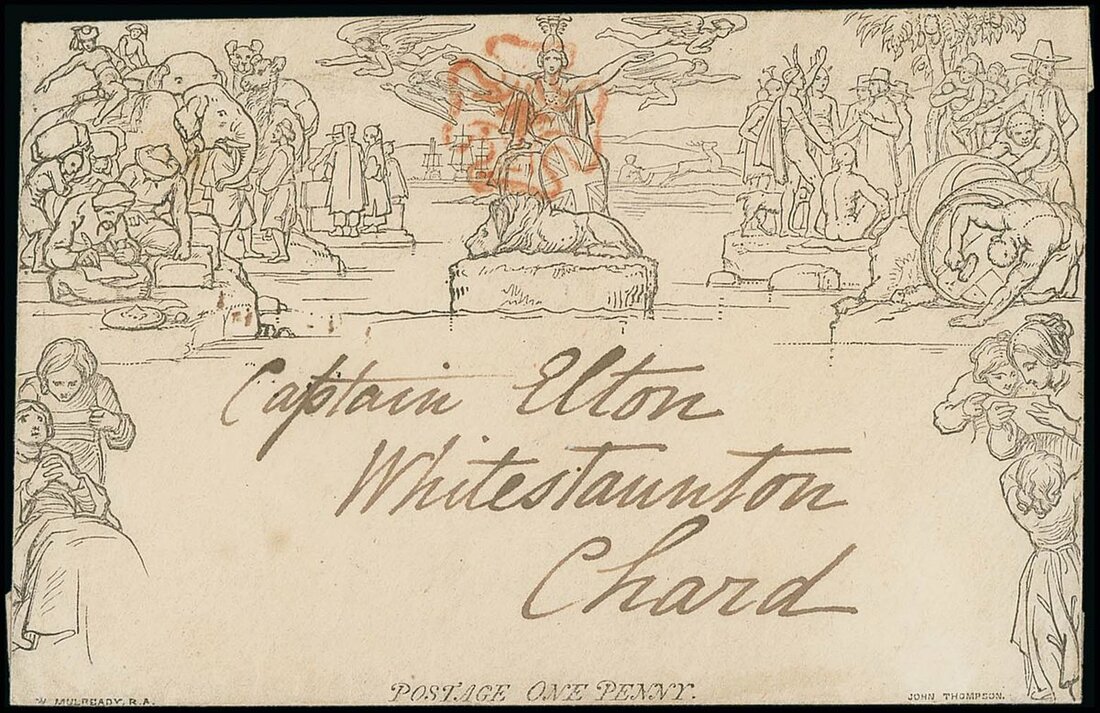 Captain Elton
Whitestaunton
Chard
POSTAGE ONE PENNY.
W. MULREADY. R.A.
JOHN THOMPSON.